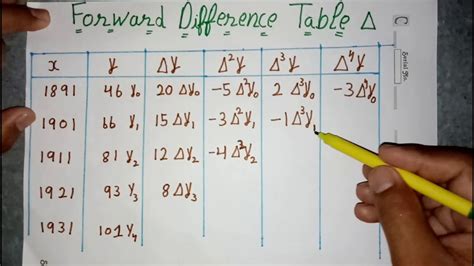 Forward Difference Table Δ
x y Δy Δ²y Δ³y Δ⁴y
1891 46 y₀ 20 Δy₀ -5 Δ²y₀ 2 Δ³y₀ -3 Δ⁴y₀
1901 66 y₁ 15 Δy₁ -3 Δ²y₁ -1 Δ³y₁
1911 81 y₂ 12 Δy₂ -4 Δ²y₂
1921 93 y₃ 8 Δy₃
1931 101 y₄